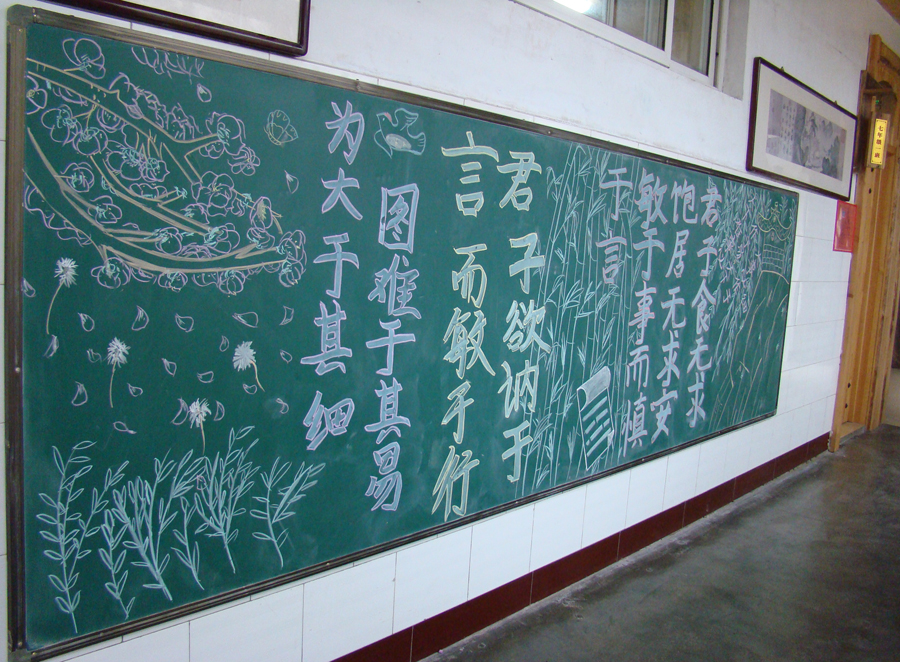 君子食无求
饱居无求安
敏于事而慎
于言
君子欲讷于
言而敏于行
图难于其易
为大于其细
七年级一班